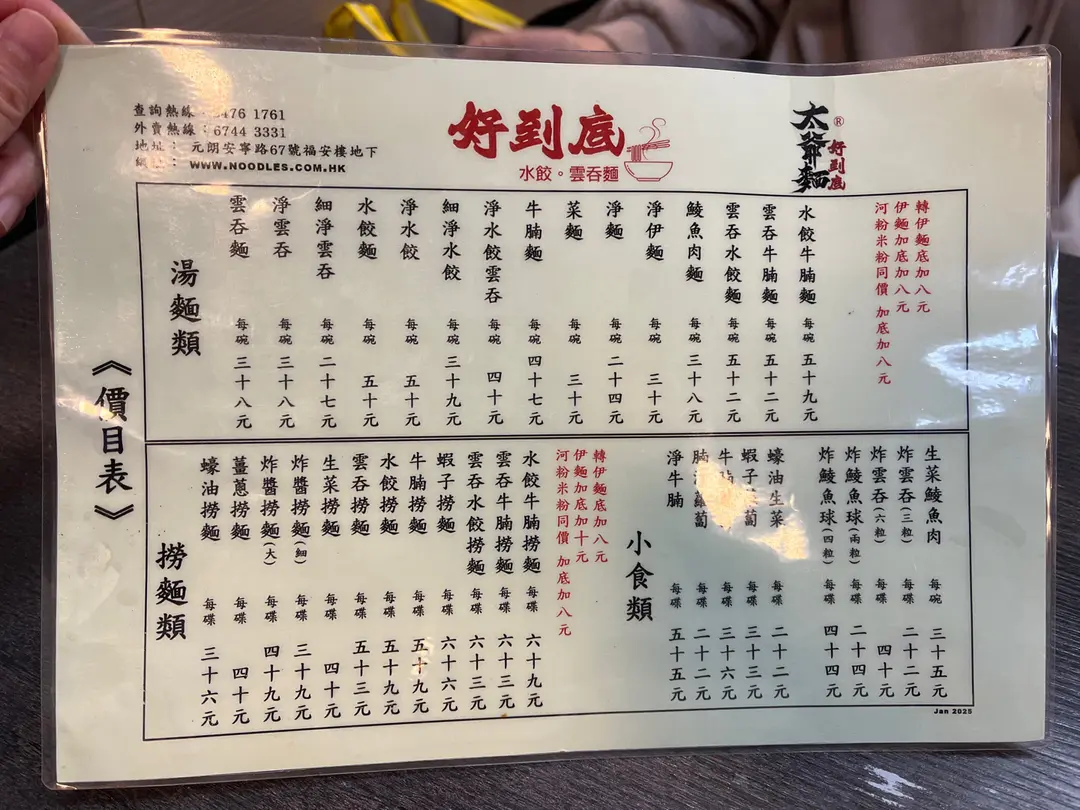 查詢熱線 476 1761
外賣熱線：6744 3331
地址： 元朗安寧路67號福安樓地下
WWW.NOODLES.COM.HK
好到底
水餃。雲吞麵
太爺麵®
好到底
《價目表》
湯麵類
雲吞麵 每碗 三十八元
淨雲吞 每碗 三十八元
細淨雲吞 每碗 二十七元
水餃麵 每碗 五十元
淨水餃 每碗 五十元
細淨水餃 每碗 三十九元
淨水餃雲吞 每碗 四十元
牛腩麵 每碗 四十七元
菜麵 每碗 三十元
淨麵 每碗 二十四元
淨伊麵 每碗 三十元
鯪魚肉麵 每碗 三十八元
雲吞水餃麵 每碗 五十二元
雲吞牛腩麵 每碗 五十二元
水餃牛腩麵 每碗 五十九元
轉伊麵底加八元
伊麵加底加八元
河粉米粉同價 加底加八元
撈麵類
蠔油撈麵 每碟 三十六元
薑蔥撈麵 每碟 四十元
炸醬撈麵(大) 每碟 四十九元
炸醬撈麵(細) 每碟 三十九元
生菜撈麵 每碟 四十元
雲吞撈麵 每碟 五十三元
水餃撈麵 每碟 五十九元
牛腩撈麵 每碟 五十九元
蝦子撈麵 每碟 六十六元
雲吞水餃撈麵 每碟 六十三元
雲吞牛腩撈麵 每碟 六十三元
水餃牛腩撈麵 每碟 六十九元
轉伊麵底加八元
伊麵加底加十元
河粉米粉同價 加底加八元
小食類
淨牛腩 每碟 五十五元
腩 蘿蔔 每碟 二十二元
牛 蔔 每碟 三十六元
蝦子 蔔 每碟 三十三元
蠔油生菜 每碟 二十二元
炸鯪魚球(四粒) 每碟 四十四元
炸鯪魚球(兩粒) 每碟 二十四元
炸雲吞(六粒) 每碟 四十元
炸雲吞(三粒) 每碟 二十二元
生菜鯪魚肉 每碗 三十五元
Jan 2025